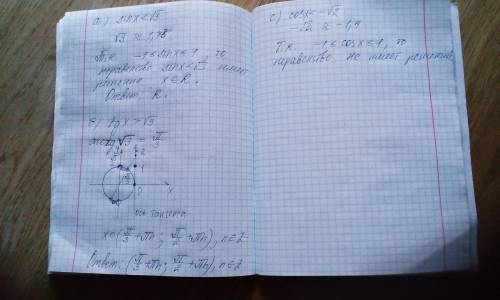 а) sinx<√3
√3 ≈ 1,78
Т.к. -1≤sinx≤1, то
неравенство sinx<√3 имеет
решение x∈R.
Ответ: R.
в) tgx>√3
arctg√3 = π/3
2
1
0
x
ось тангенса
x∈(π/3+πn; π/2+πn), n∈Z
Ответ: (π/3+πn; π/2+πn), n∈Z
с) cosx<-√3
Т.к. -1≤cosx≤1, то
неравенство не имеет решение